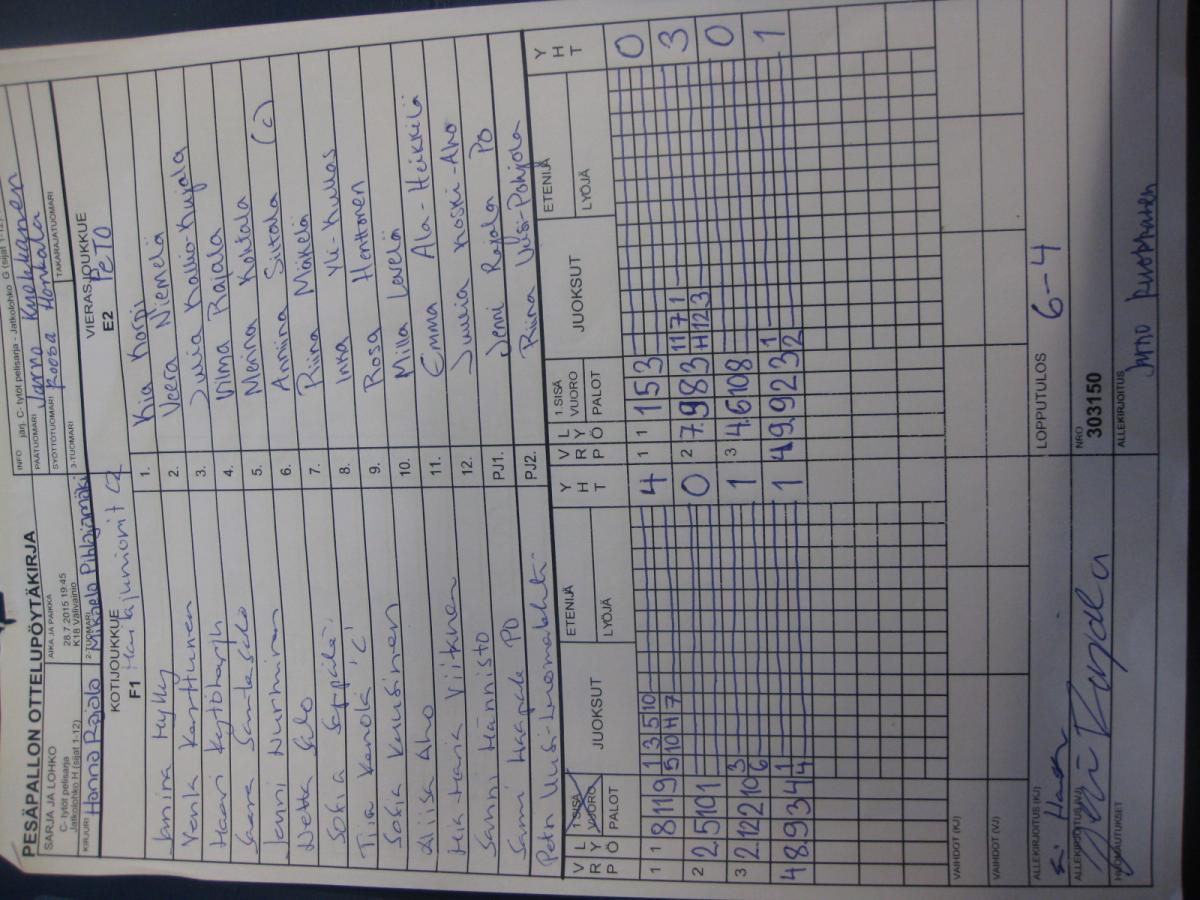 PESÄPALLON OTTELUPÖYTÄKIRJA
SARJA JA LOHKO
C- tytöt pelisarja
Jatkolohko H (sijat 1-12)
AIKA JA PAIKKA
28.7.2015 19:45
K18 Välivainio
INFO järj. C- tytöt pelisarja - Jatkolohko G (sijat 1-12)
PÄÄTUOMARI Jarno Kuokkanen
SYÖTTÖTUOMARI Roosa Honkala
KIRJURI Hanna Rajala
2-TUOMARI Mikaela Pihlajamäki
3-TUOMARI
TAKARAJATUOMARI
KOTIJOUKKUE
F1 Hankajuniorit C2
VIERASJOUKKUE
E2 PeTo
Janina Hylky 1. Kia Korpi
Venla Karttunen 2. Veera Niemelä
3. Juulia Kallio-Kujala
Saara Santasalo 4. Vilma Rajala
Jenni Nurminen 5. Merina Kohtala
Netta Salo 6. Anniina Siltala (c)
Sofia Seppälä 7. Riina Mäkelä
8. Inka Yli-Kullas
Sofia Kuusinen 9. Rosa Henttonen
Aliisa Aho 10. Milla Levelä
Viikman 11. Emma Ala-Heikkilä
Sani Hännistö 12. Juulia Koski-Aho
Sanni Haapala PO PJ1. Jenni Rajala PO
Petri Uusi-Luomalahti PJ2. Riina Uusi-Pohjola
V R P L Y Ö 1.SISÄ VUORO PALOT JUOKSUT ETENIJÄ LYÖJÄ Y H T
V R P L Y Ö 1.SISÄ VUORO PALOT JUOKSUT ETENIJÄ LYÖJÄ Y H T
1 1 8 11 9 1 3 5 10 4 1 1 1 5 3 0
5 10 H 7
2 2 5 10 1 0 2 7 9 8 3 11 7 1 3
H 12 3
3 2 12 2 10 3 1 3 4 6 10 8 0
6
4 8 9 3 4 1 1 4 9 9 2 3 1 1
4 2
VAIHDOT (KJ)
VAIHDOT (VJ)
LOPPUTULOS 6-4
ALLEKIRJOITUS (KJ)
ALLEKIRJOITUS(VJ)
NRO
303150
ALLEKIRJOITUS